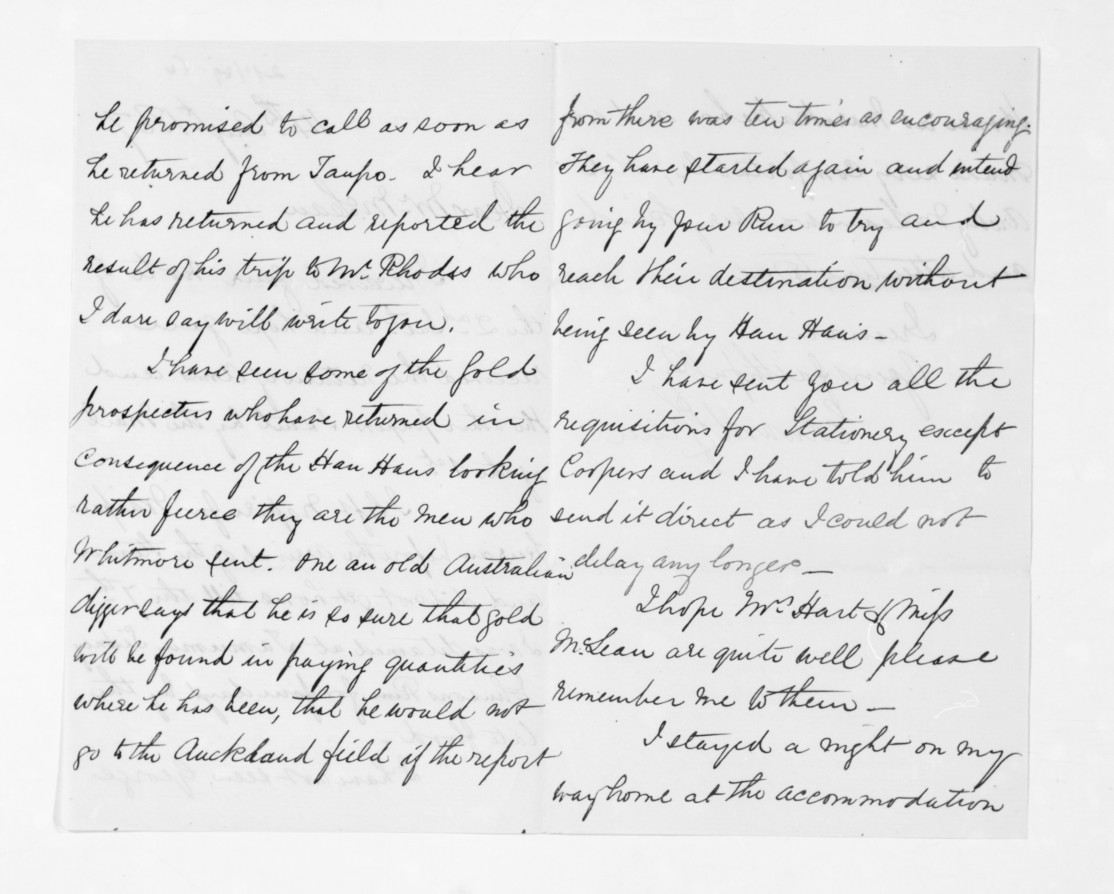 he promised to call as soon as
he returned from Taupo. I hear
he has returned and reported the
result of his trip to Mr. Rhodes who
I dare say will write to you.
I have seen some of the Gold
prospectors who have returned in
consequence of the Hau Haus looking
rather fierce they are the men who
Whitmore sent. One an old Australian
digger says that he is so sure that gold
will be found in paying quantities
where he has been, that he would not
go to the Auckland field if the report
from there was ten times as encouraging.
They have started again and intend
going by your Run to try and
reach their destination without
being seen by Hau Haus -
I have sent you all the
requisitions for Stationery except
Coopers and I have told him to
send it direct as I could not
delay any longer -
I hope Mrs Hart & Miss
McLean are quite well please
remember me to them -
I stayed a night on my
way home at the accommodation